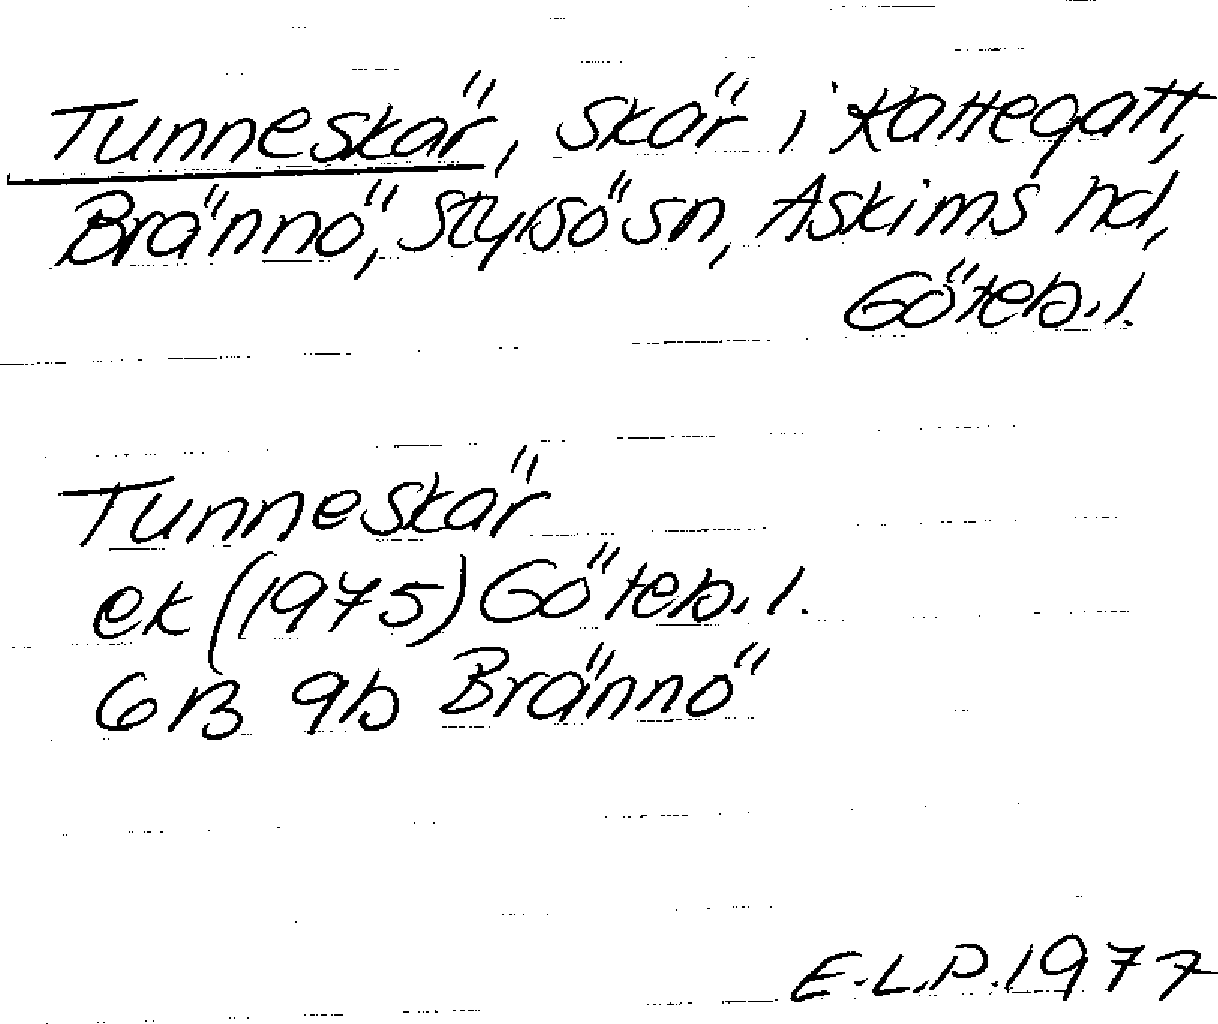 Tunneskär, skär i Kattegatt,
Brännö, Styrsö sn, Askims hd,
Göteb. l.
Tunneskär
ek (1975) Göteb. l.
6B 9b Brännö
E.L.P. 1977